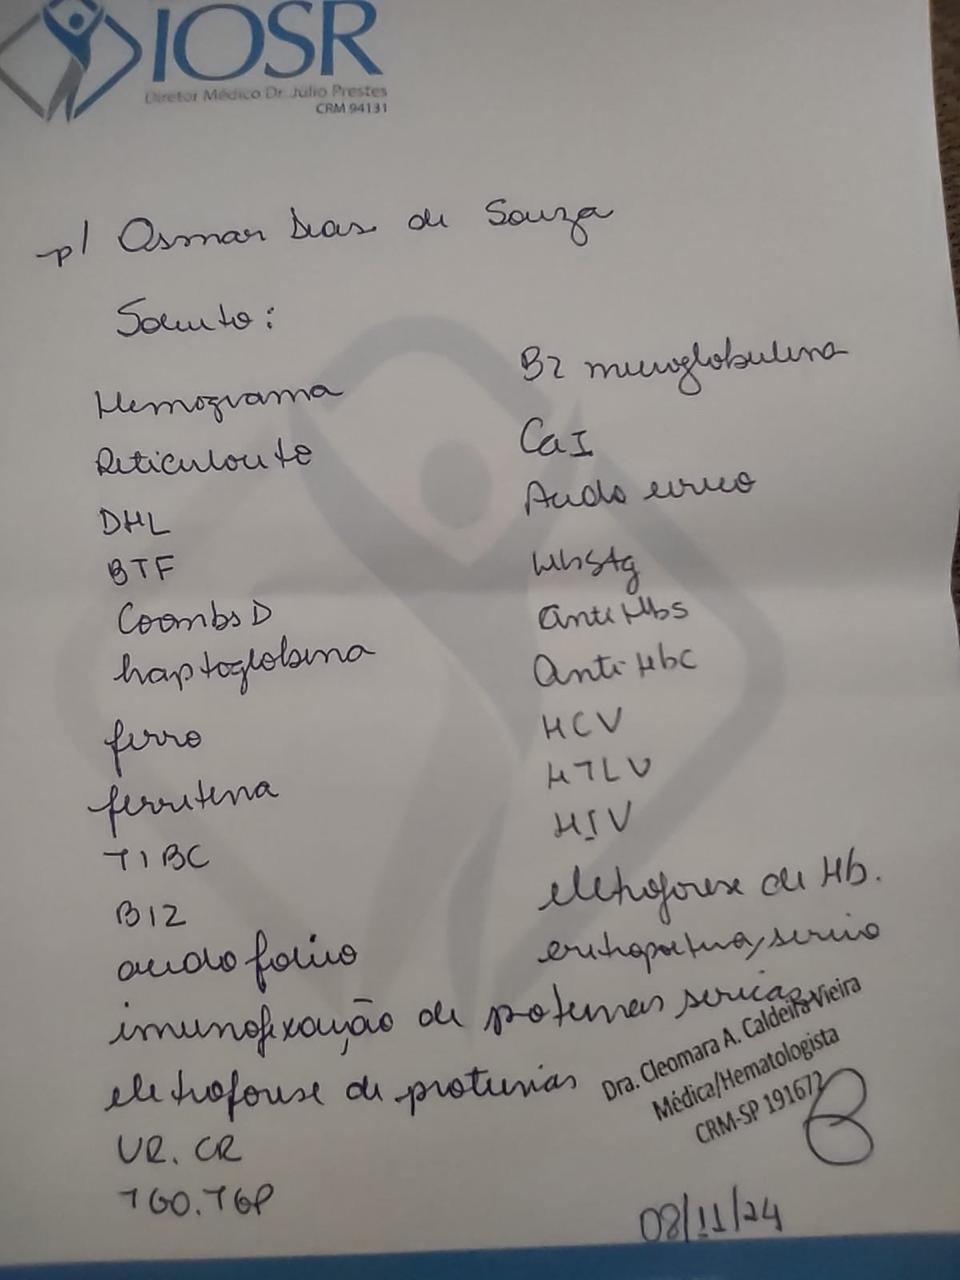 IOSR
Diretor Médico Dr. Júlio Prestes
CRM 94131
p/ Osmar Dias de Souza
Solicito:
Hemograma
Reticulocito
DHL
BTF
Coombs D
haptoglobina
ferro
ferritina
TIBC
B12
acido folico
imunofixação de proteinas sericas
eletroforese de proteinas
UR. CR
TGO. TGP
B2 microglobulina
CaI
Acido urico
HbsAg
anti Hbs
Anti-Hbc
HCV
HTLV
HIV
eletroforese de Hb.
eritropoetina, serico
Dra. Cleomara A. Caldeira Vieira
Médica/Hematologista
CRM-SP 191672
08/11/24